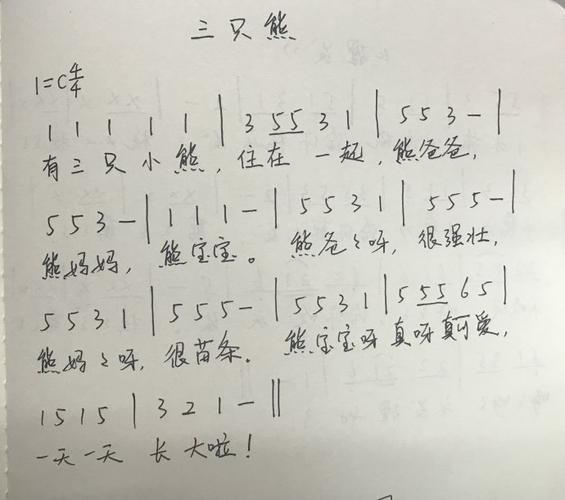 三只熊
1=C 4/4
1 1 1 1 1 | 3 55 3 1 | 5 5 3 - |
有三只小熊,住在一起,熊爸爸,
5 5 3 - | 1 1 1 - | 5 5 3 1 | 5 5 5 - |
熊妈妈,熊宝宝。熊爸々呀,很强壮,
5 5 3 1 | 5 5 5 - | 5 5 3 1 | 5 55 6 5 |
熊妈々呀,很苗条。熊宝宝呀真呀真可爱,
1 5 1 5 | 3 2 1 - ‖
一天一天 长大啦!